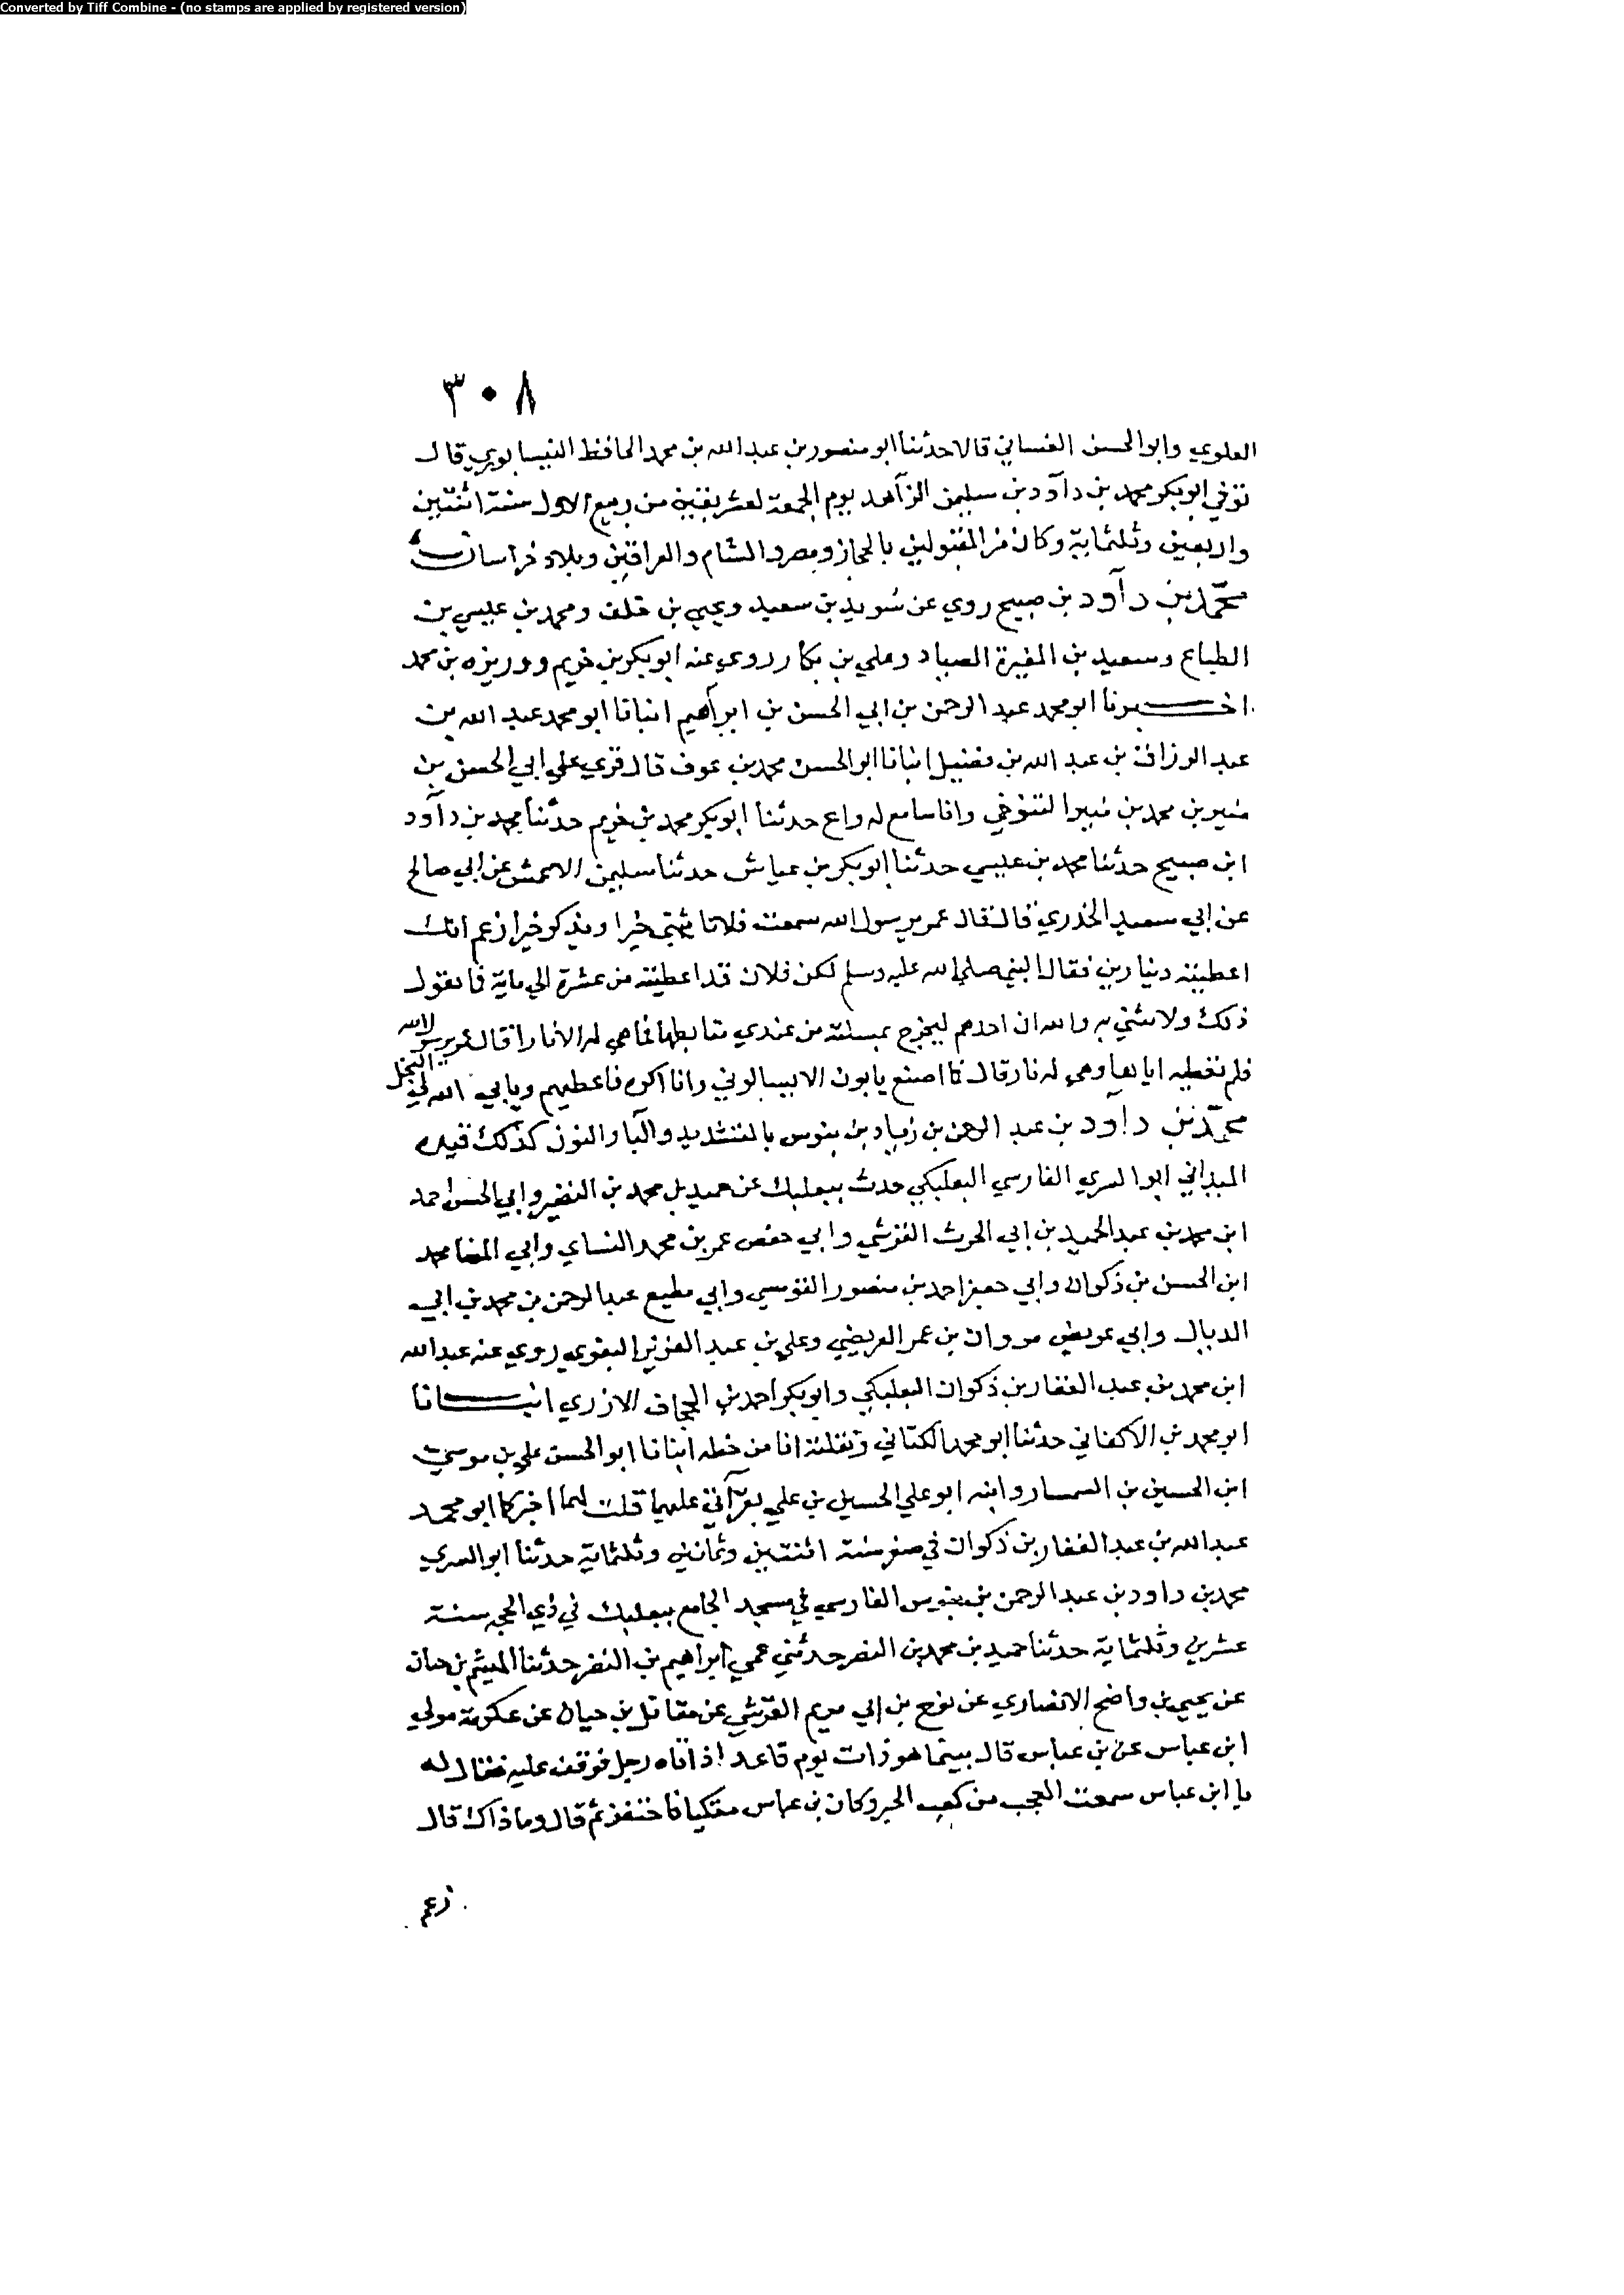 Converted by Tiff Combine - (no stamps are applied by registered version)
٣٠٨
العلوي وابو الحسن الغساني قالا حدثنا ابو منصور بن عبد الله بن محمد الحافظ النيسابوري قال
توفي ابو بكر محمد بن داود بن سليمن الزاهد يوم الجمعة لعشر بقين من ربيع الاول سنة اثنتين
واربعين وثلثماية وكان من المقبولين بالحجاز ومصر والشام والعراقين وبلاد خراسان
محمد بن داود بن صبيح روي عن سويد بن سعيد ويحيي بن خلف ومحمد بن عيسي بن
الطباع وسعيد بن المغيرة الصياد وعلي بن بكار روي عنه ابو بكر بن خريم ووريزه بن محمد
اخبرنا ابو محمد عبد الرحمن بن ابي الحسن بن ابراهيم انبانا ابو محمد عبد الله بن
عبد الرزاق بن عبد الله بن فضيل انبانا ابو الحسن محمد بن عوف قال قري علي ابي الحسن بن
منير بن محمد بن منير التنوخي وانا سامع له واع حدثنا ابو بكر محمد بن خريم حدثنا محمد بن داود
ابن صبيح حدثنا محمد بن عيسي حدثنا ابو بكر بن عياش حدثنا سليمن الاعمش عن ابي صالح
عن ابي سعيد الخدري قال قال عمر يرسول الله سمعت فلانا يثني خيرا ويذكر خيرا زعم انك
اعطيته دنيارين فقال النبي صلي الله عليه وسلم لكن فلان قد اعطيته من عشرة الي ماية فما يقول
ذلك ولا يثني به والله ان احدهم ليخرج بمسلته من عندي متابطها فما هي له الا نارا قال عمر يرسول الله
فلم تعطيه اياها وهي له نار قال فما اصنع يابون الا يسالوني وانا اكره فاعطيهم ويابي الله لي البخل
محمد بن داود بن عبد الرحمن بن زياد بن بنوس بالتشديد والبا والنون كذلك قيده
الميداني ابو السري الفارسي البعلبكي حدث ببعلبك عن حميد بن محمد بن النضير وابي الحسن احمد
ابن محمد بن عبد الحميد بن ابي الحرث القرشي وابي حفص عمر بن محمد النساي وابي المضا محمد
ابن الحسن بن ذكوان وابي جعفر احمد بن منصور القومسي وابي مطيع عبد الرحمن بن محمد بن ابي
الديال وابي عريض مروان بن عمر العريضي وعلي بن عبد العزيز البغوي روي عنه عبد الله
ابن محمد بن عبد الغفار بن ذكوان البعلبكي وابو بكر احمد بن الجحاف الازري انبانا
ابو محمد بن الاكفاني حدثنا ابو محمد الكتاني ونقلته انا من خطه انبانا ابو الحسن علي بن موسي
ابن الحسين بن السمسار وابنه ابو علي الحسين بن علي بقراني عليهما قلت لهما اخبركما ابو محمد
عبد الله بن عبد الغفار بن ذكوان في صفر سنة اثنتين وثمانين وثلثماية حدثنا ابو السري
محمد بن داود بن عبد الرحمن بن بنوس الفارسي في مسجد الجامع ببعلبك في ذي الحجه سنة
عشرين وثلثماية حدثنا حميد بن محمد بن النضر حدثني عمي ابراهيم بن النضر حدثنا الميثم بن حنان
عن يحيي بن واضح الانصاري عن نوح بن ابي مريم القرشي عن مقاتل بن حيان عن عكرمة مولي
ابن عباس عن بن عباس قال بينما هو ذات يوم قاعد اذ اتاه رجل فوقف عليه فقال له
يا ابن عباس سمعت العجب من كعب الحبر وكان بن عباس متكيا فاحتفز ثم قال وما ذاك قال
زعم